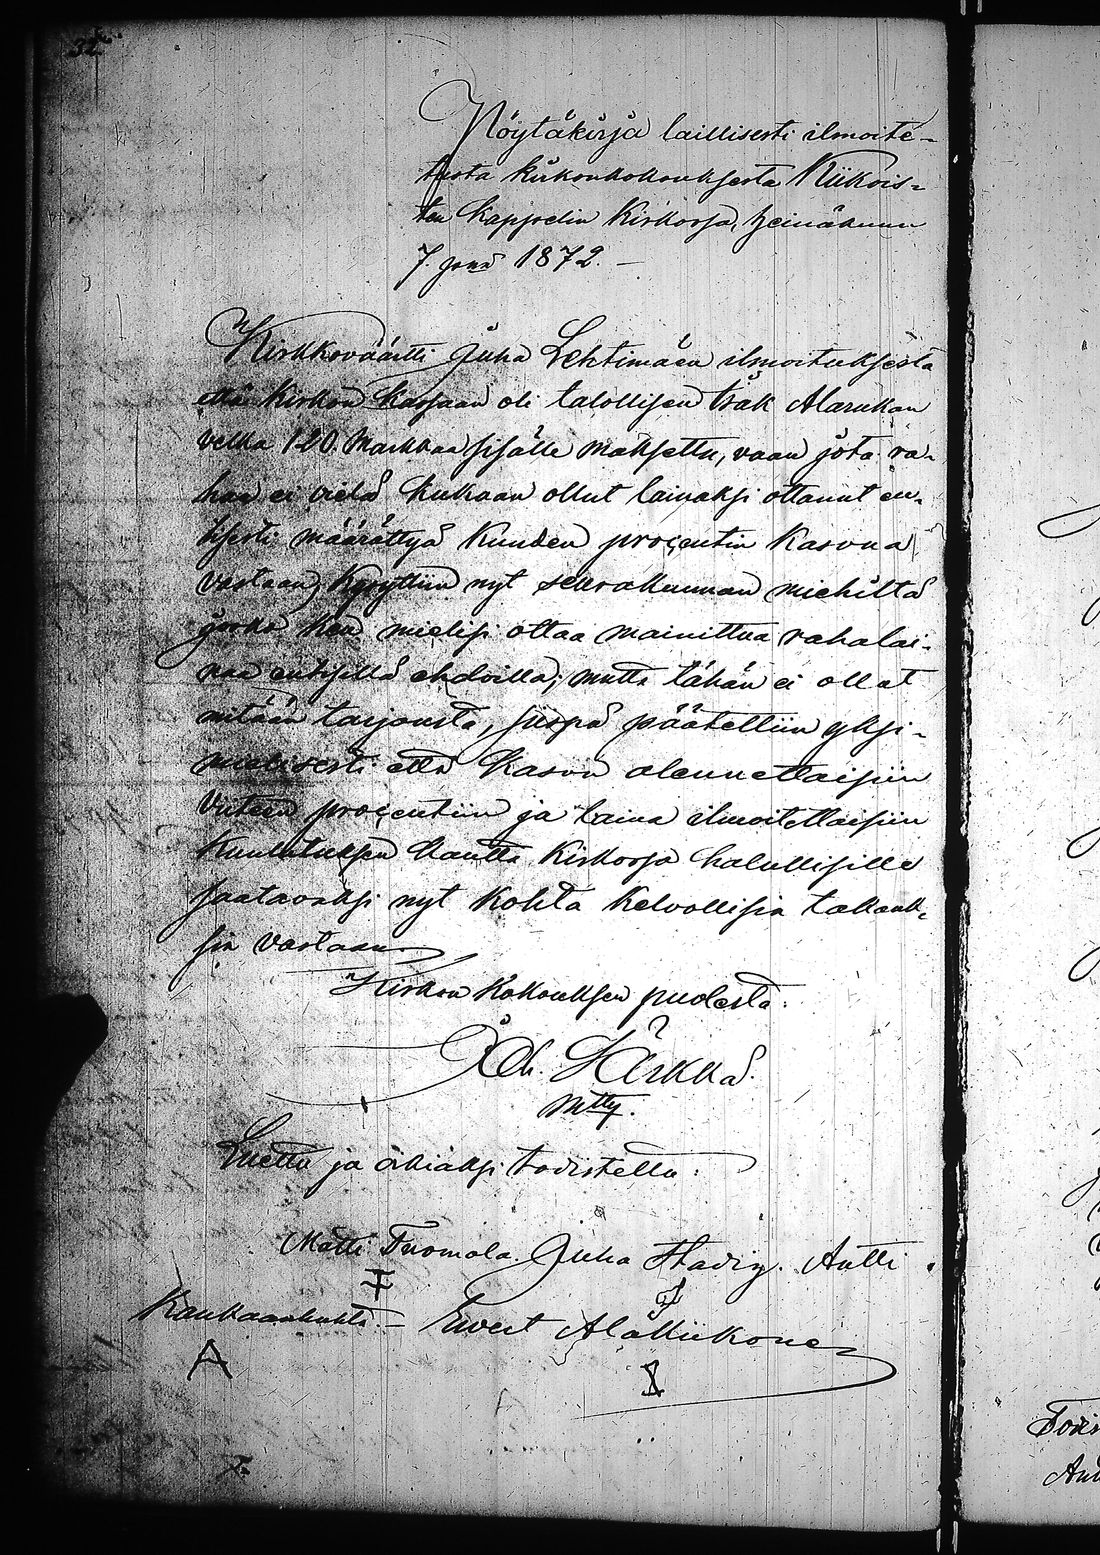 32.
Pöytäkirja laillisesti ilmoite-
tusta kirkonkokouksesta Kiikois-
ten Kappelin Kirkossa, heinäkuun
7. pnä 1872. –
Kirkkoväärtti Juha Lehtimäen ilmoituksesta
että Kirkon Kassaan oli talollisen Isak Alarukan
velka 120 Markkaa sisälle maksettu, vaan jota ra-
haa ei vielä kukaan ollut lainaksi ottanut en-
tisesti määrättyä kuuden procentin kasvua
vastaan, kysyttiin nyt seurakunnan miehiltä
josko ken mielisi ottaa mainittua rahalai-
naa entisillä ehdoilla; mutta tähän ei ollut
mitään tarjousta, jossa päätettiin yksi-
mielisesti että kasvu alennettaisiin
viiteen procentiin ja laina ilmoitettaisiin
kuulutuksen kautta Kirkossa halullisille
saatavaksi nyt kohta kelvollisia takauk-
sia vastaan.
Kirkon Kokouksen puolesta:
Joh. Härkkä.
Luettu ja oikiaksi todistettu:
Matti Tuomola. Juha Stadig. Antti
Kaukaanhuhta – Evert AlaKiikoinen
A X